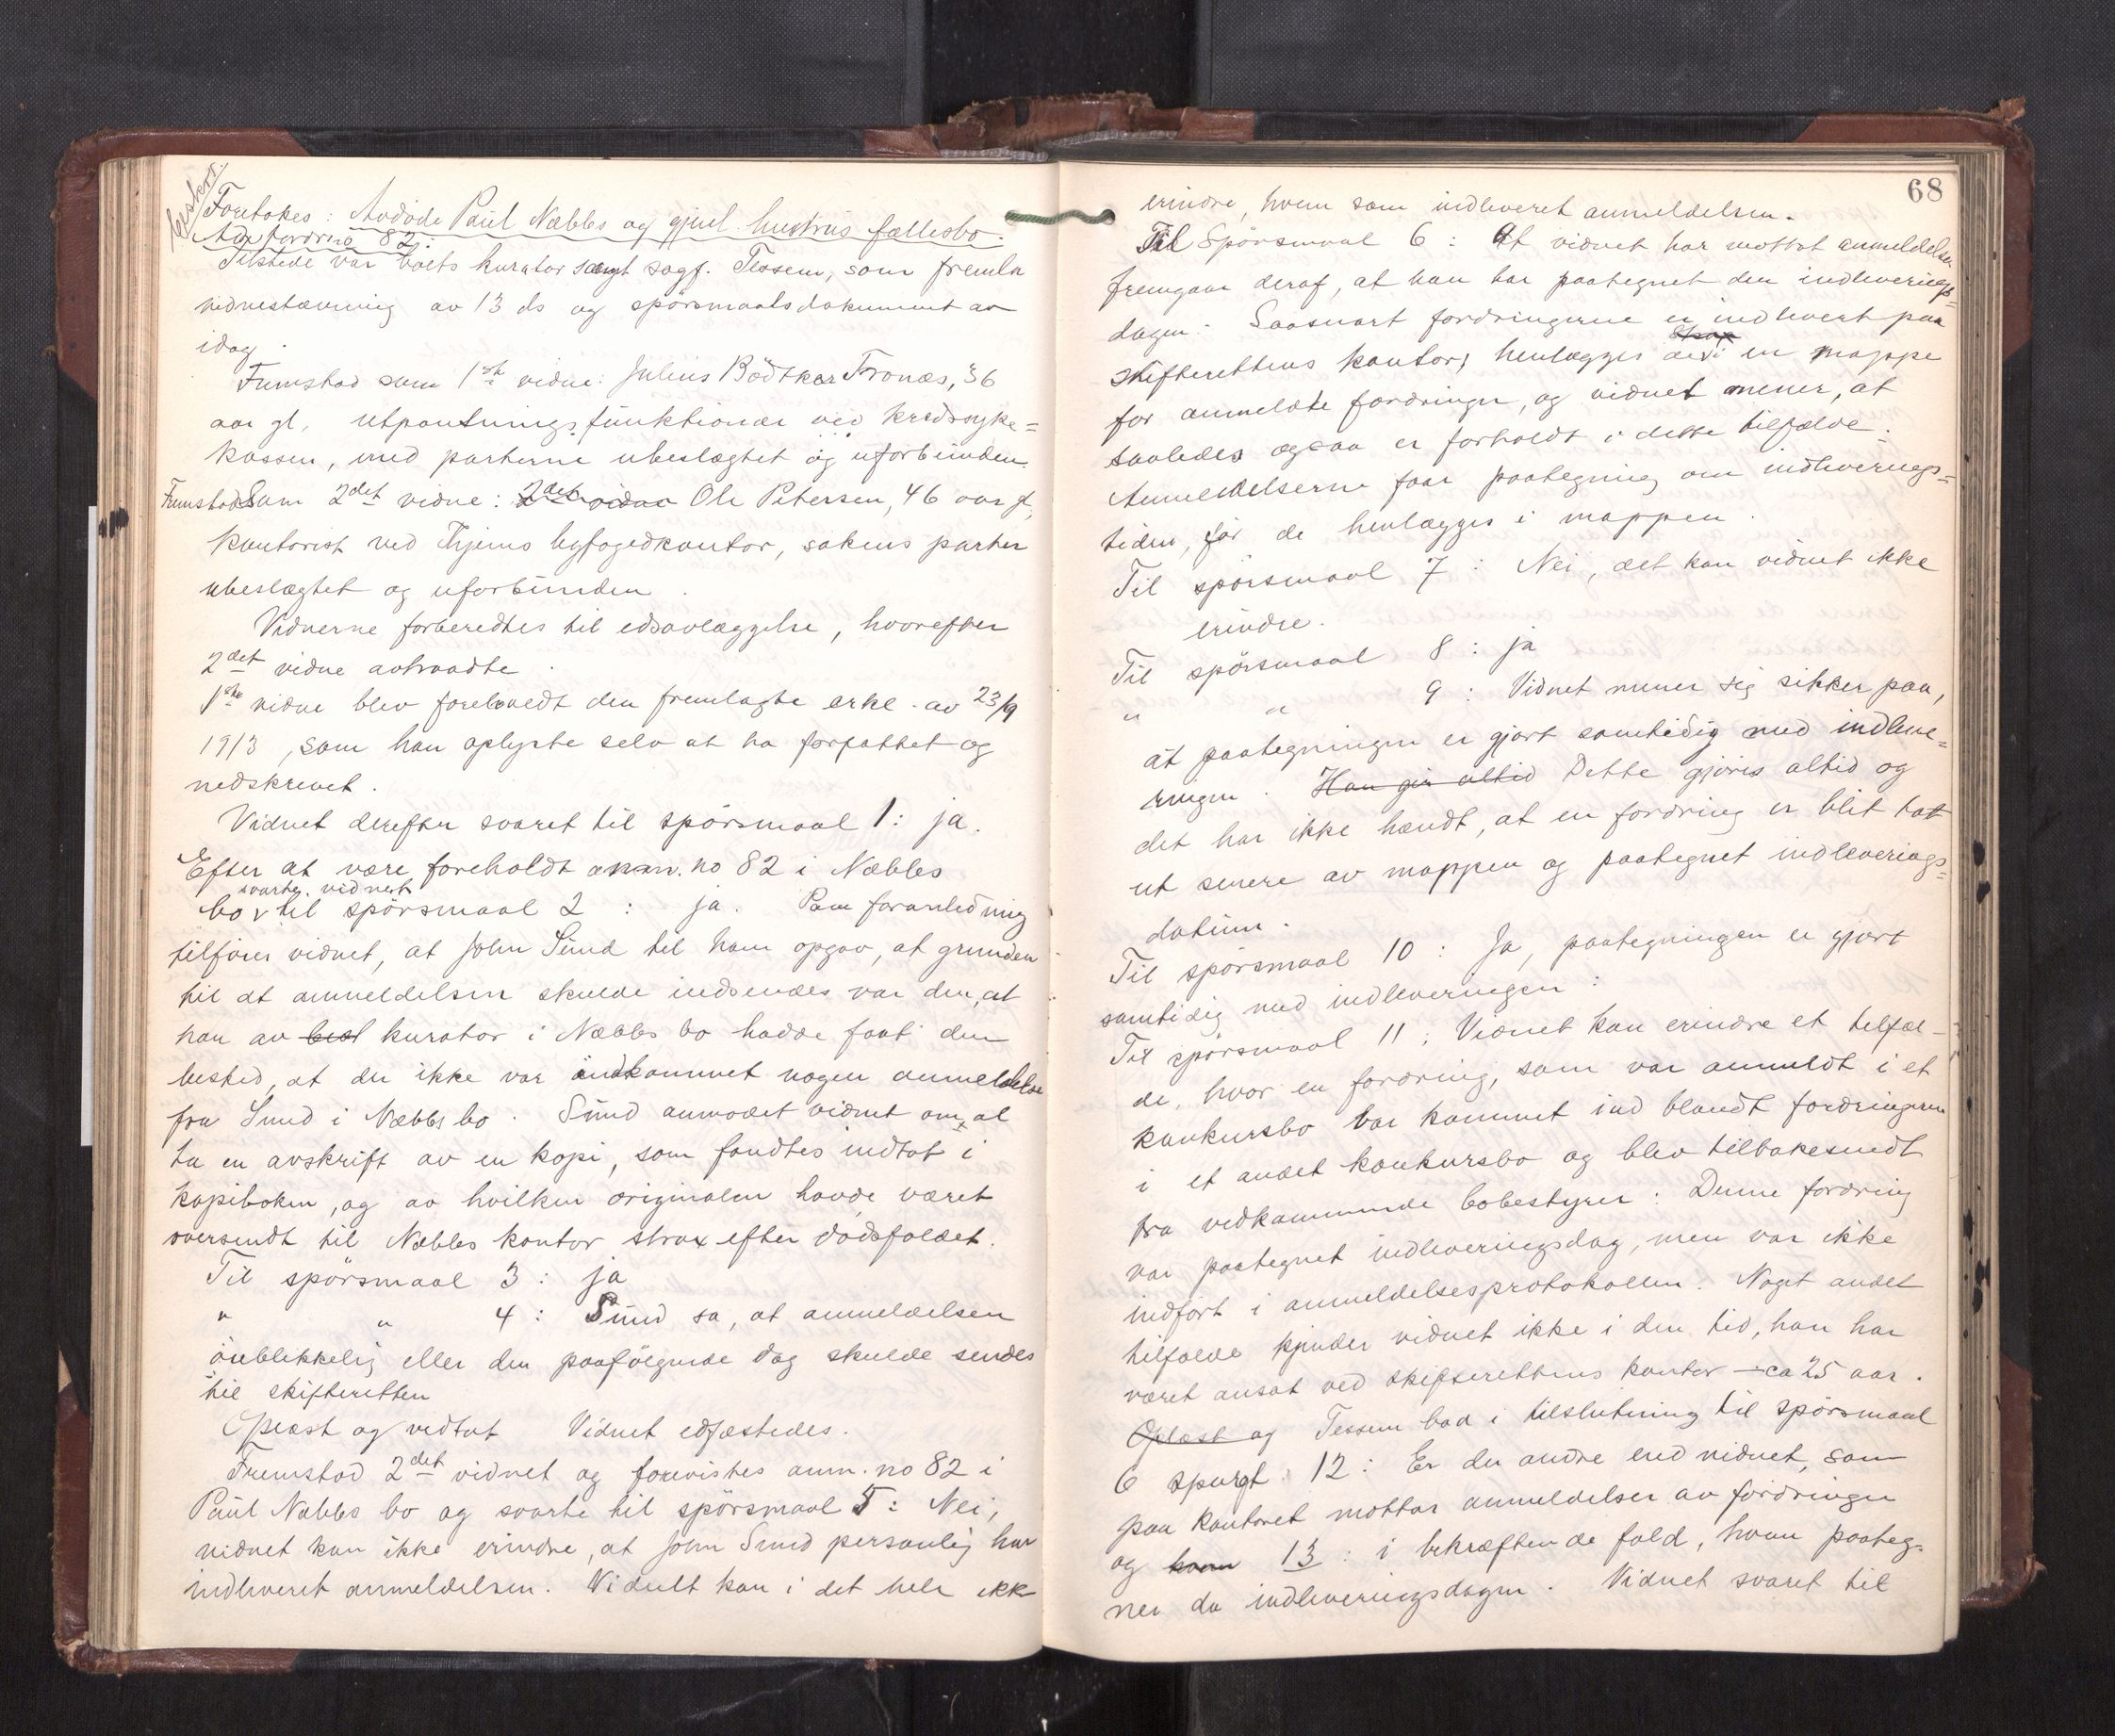 beskr:
Foretokes: Avdøde Paul Næbbes og gjenl. hustrus fællesbo.
Ad fordring 82:
Tilstede var boets kurator samt sagf. Tessem, som fremla
vidnestævning av 13 ds og spørsmaalsdokument av
idag.
Fremstod som 1ste vidne: Julius Bödtker Tronæs, 36
aar gl, utpantningsfunktionær ved kredssyke=
kassen, med parterne ubeslægtet og uforbunden.
Fremstod Som 2det vidne: 2det vidne Ole Petersen, 46 aar gl,
kontorist ved Thjems byfogedkontor, sakens parter
ubeslægtet og uforbunden.
Vidnerne forberedtes til edsavlæggelse, hvorefter
2det vidne avtraadte.
1ste vidne blev foreholdt den fremlagte erkl. av 23/9
1913, som han oplyste selv at ha forfattet og
nedskrevet.
Vidnet derefter svaret til spørsmaal 1: ja.
Efter at være foreholdt anm. no 82 i Næbbes
svarte vidnet
bo til spørsmaal 2: ja. Paa foranledning
tilføier vidnet, at John Sund til ham opgav, at grunden
til at anmeldelsen skulde indsendes var den, at
han av kurator i Næbbes bo hadde faat den
besked, at der ikke var indkommet nogen anmeldelse
fra Sund i Næbbes bo. Sund anmodet vidnet om at
ta en avskrift av en kopi, som fandtes indtat i
kopiboken, og av hvilken originalen havde været
oversendt til Næbbes kontor strax efter dødsfaldet.
Til spørsmaal 3: ja
" " 4: Sund sa, at anmeldelsen
øieblikkelig eller den paafølgende dag skulde sendes
til skifteretten
Oplæst og vedtat Vidnet edfæstedes.
Fremstod 2det vidnet og forevistes anm. no 82 i
Paul Næbbes bo og svarte til spørsmaal 5: Nei,
vidnet kan ikke erindre, at John Sund personlig har
indleveret anmeldelsen. Vidnet kan i det hele ikk
68
erindre, hvem som indleveret anmeldelsen.
Til Spørsmaal 6: At vidnet har mottat anmeldelsen
fremgaar deraf, at han har paategnet den indleverings=
dagen. Saasnart fordringerne er indlevert paa
skifterettens kontor, henlægges de i en mappe
for anmeldte fordringer, og vidnet mener, at
saaledes ogsaa er forholdt i dette tilfælde.
Anmeldelserne faar paategning om indleverings=
tiden, før de henlægges i mappen.
Til spørsmaal 7: Nei, det kan vidnet ikke
erindre.
Til spørsmaal 8: ja
" " 9: Vidnet mener sig sikker paa,
at paategningen er gjort samtidig med indleve=
ringen. Han gir altid Dette gjøres altid og
det har ikke hændt, at en fordring er blit tat
ut senere av mappen og paategnet indleverings=
datum.
Til spørsmaal 10: Ja, paategningen er gjort
samtidig med indleveringen.
Til spørsmaal 11: Vidnet kan erindre et tilfæl-
de, hvor en fordring, som var anmeldt i et
konkursbo var kommet ind blandt fordringerne
i et andet konkursbo og blev tilbakesendt
fra vedkommende bobestyrer. Denne fordring
var paategnet indleveringsdag, men var ikke
indført i anmeldelsesprotokollen. Noget andet
tilfælde kjender vidnet ikke i den tid, han har
været ansat ved skifterettens kontor – ca 25 aar.
Oplæst og Tessem bad i tilslutning til spørsmaal
6 spurgt 12: Er der andre end vidnet, som
paa kontoret mottar anmeldelser av fordringer
og hvem 13: i bekræftende fald, hvem paateg-
ner da indleveringsdagen. Vidnet svaret til